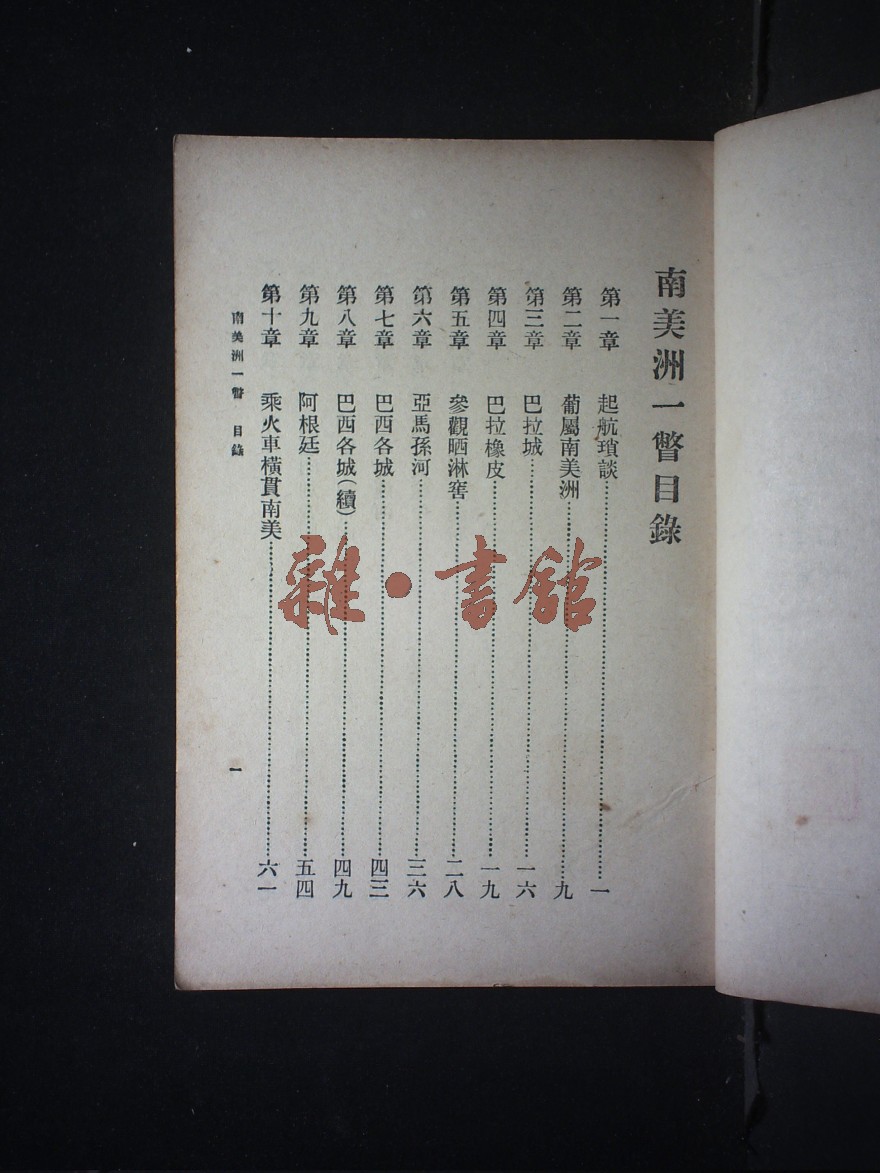 南美洲一瞥目錄
第一章 起航瑣談……一
第二章 葡屬南美洲……九
第三章 巴拉城……一六
第四章 巴拉橡皮……一九
第五章 參觀晒淋窖……二八
第六章 亞馬孫河……三六
第七章 巴西各城……四三
第八章 巴西各城(續)……四九
第九章 阿根廷……五四
第十章 乘火車橫貫南美……六一
南美洲一瞥 目錄 一
雜·書館